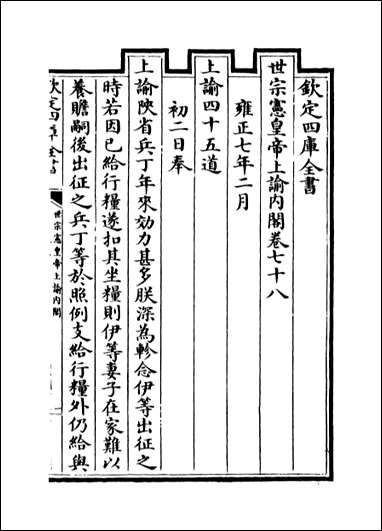 欽定四庫全書
世宗憲皇帝上諭內閣卷七十八
雍正七年二月
上諭四十五道
初二日奉
上諭陜省兵丁年來効力甚多朕深為軫念伊等出征之
時若因已給行糧遂扣其坐糧則伊等妻子在家難以
養贍嗣後出征之兵丁等於照例支給行糧外仍給與
欽定四庫全書
世宗憲皇帝上諭內閣